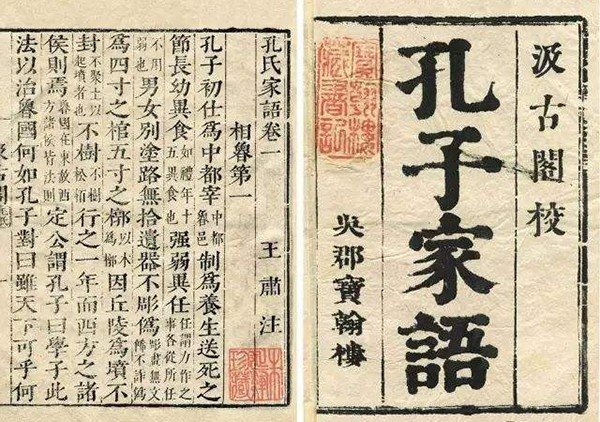 汲古閣校
孔子家語
吳郡寶翰樓
孔氏家語卷一
相魯第一 王肅注
孔子初仕爲中都宰中都魯邑制爲養生送死之
節長幼異食如禮年十五異食也強弱異任任謂力作之事各從所任
不用弱也男女別塗路無拾遺器不彫僞彫畫無文飾不詐僞
爲四寸之棺五寸之槨以木爲槨因丘陵爲墳不
封不聚土以起墳者也不樹不樹松栢行之一年而西方之諸
侯則焉魯國在東故西方諸侯皆法則定公謂孔子曰學子此
法以治魯國何如孔子對曰雖天下可乎何